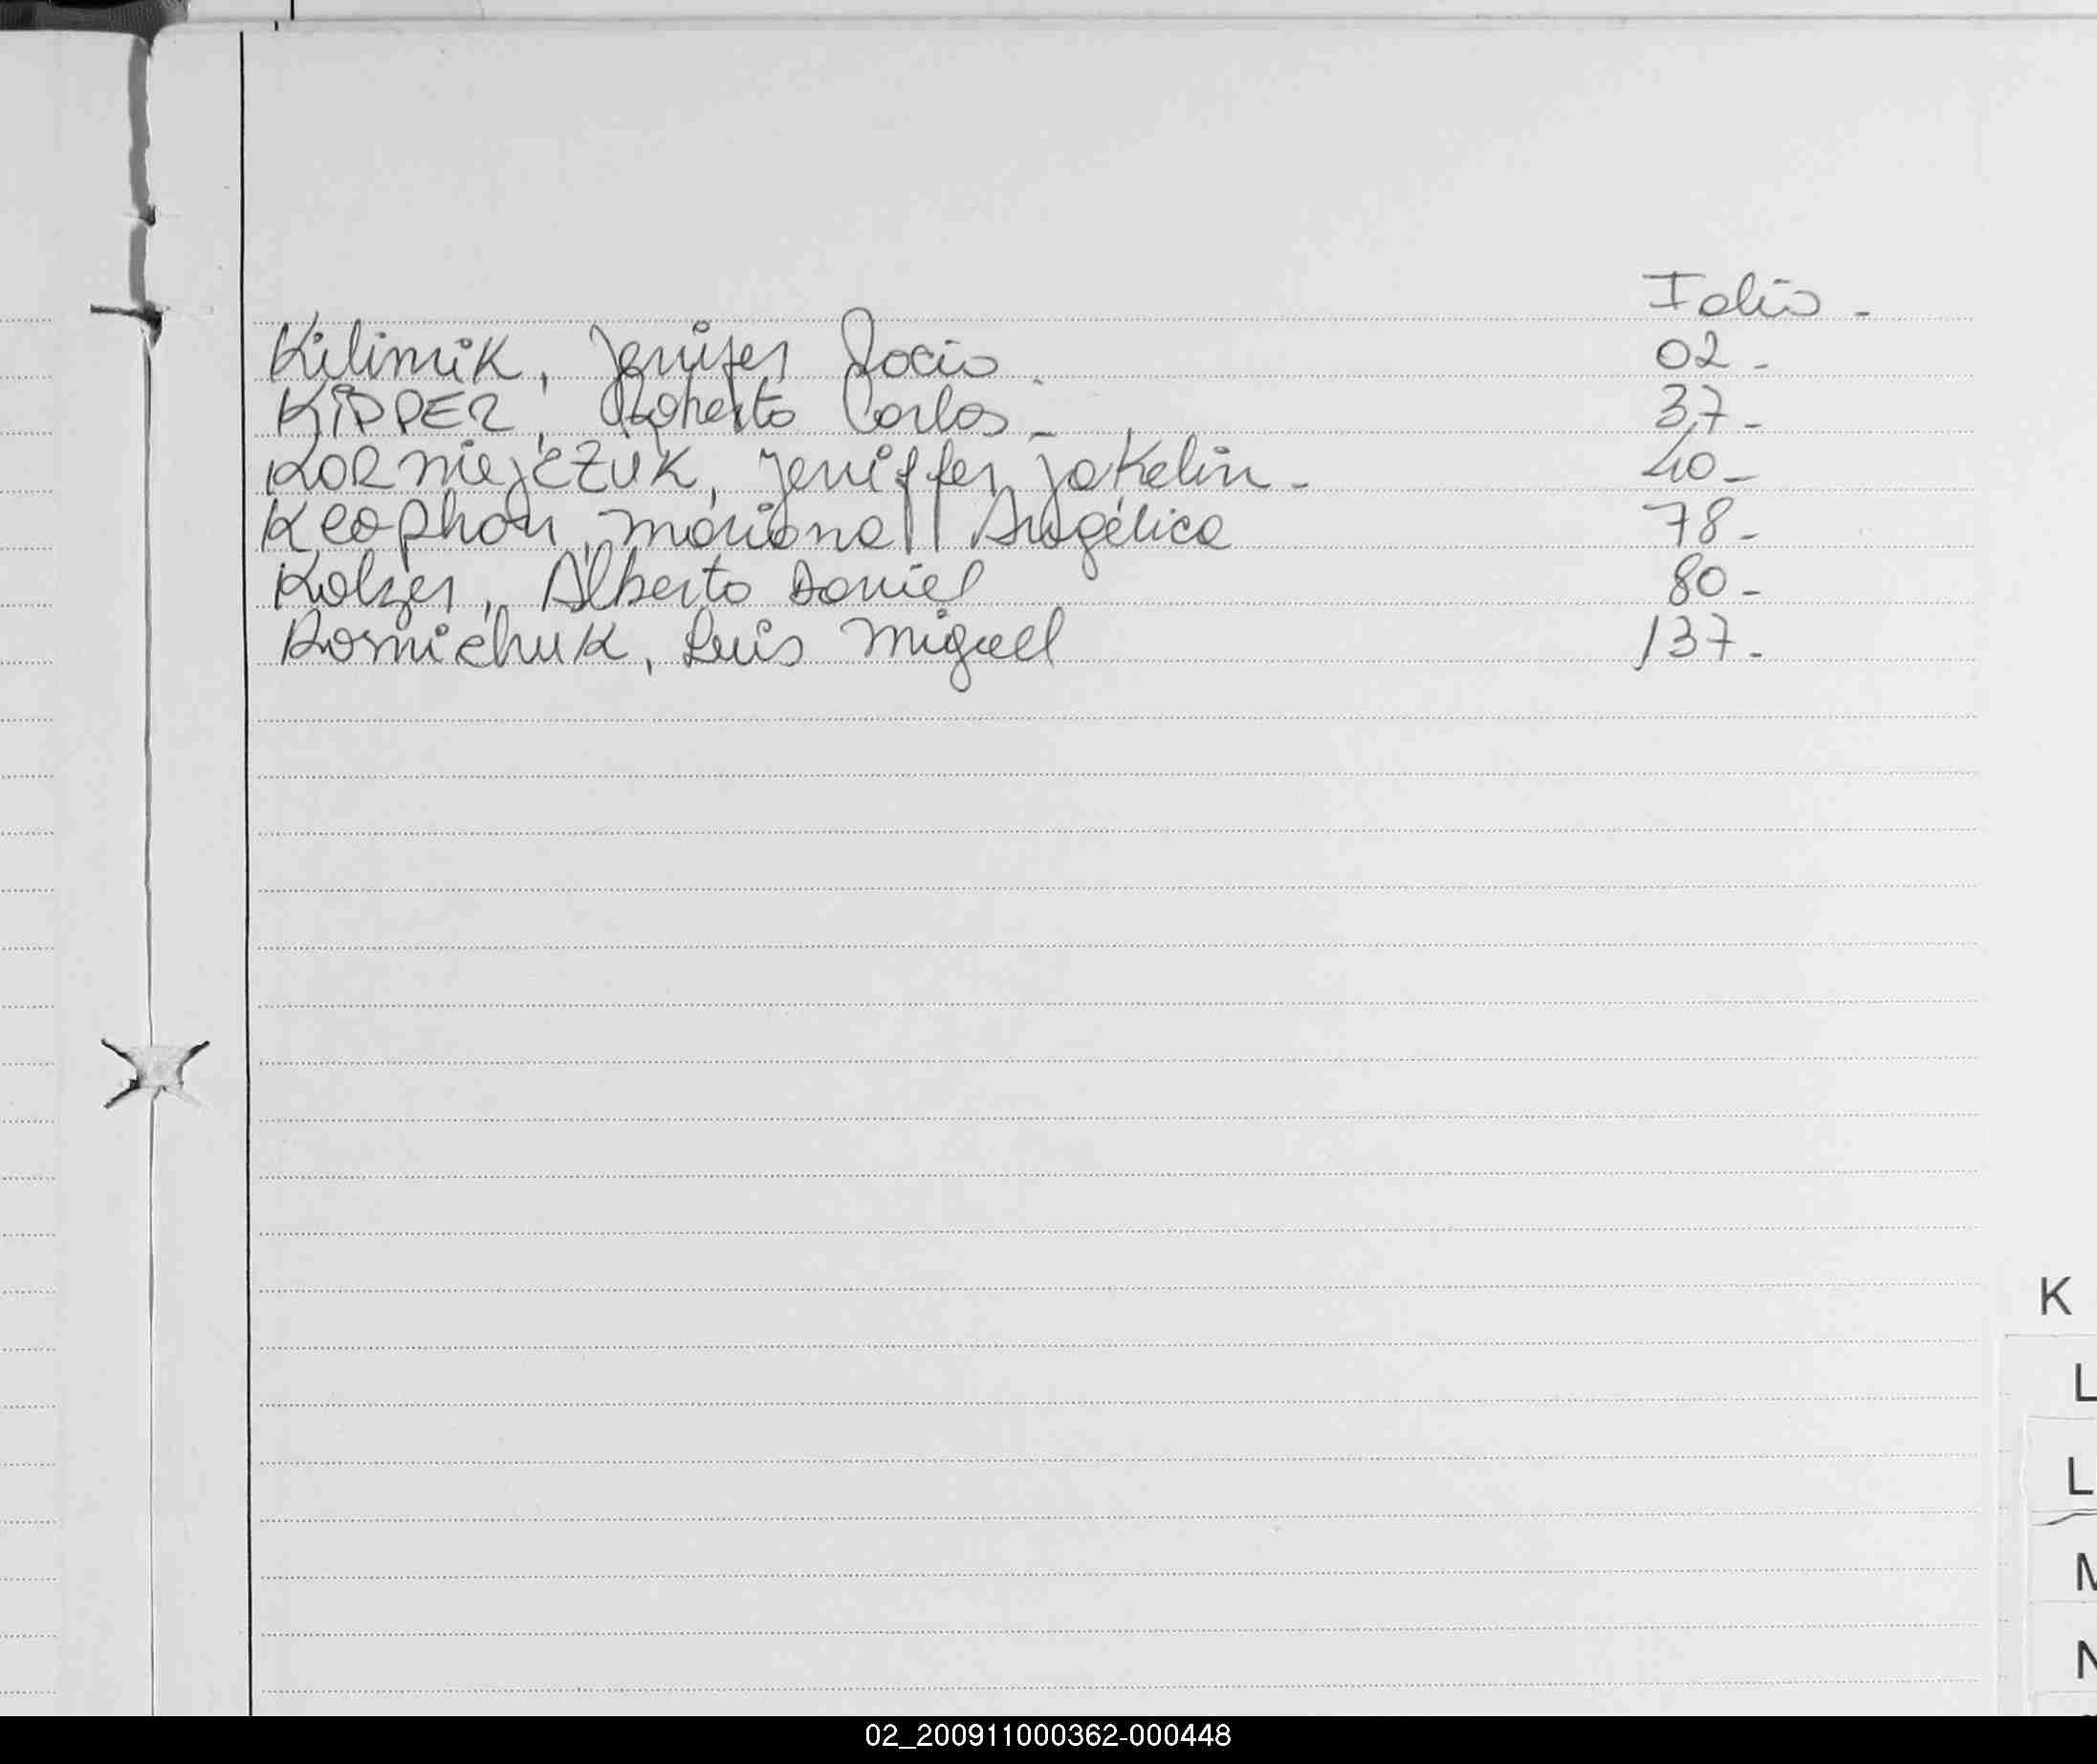 Folio -
Kilimik, Jenifer Rocio 02 -
KiPPER, Roberto Carlos - 37 -
KORniejCZUK, Jeniffer Jakelin - 40 -
Kleophon, Mariana Angélica 78 -
Kolzer, Alberto Daniel 80 -
Kosnichuk, Luis Miguel 137 -
K
L
L
M
N
02_200911000362-000448